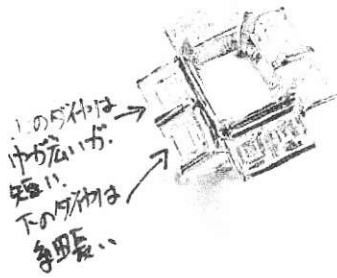 上のダイヤは
巾が広いが、
短い、
下のダイヤは
細長い